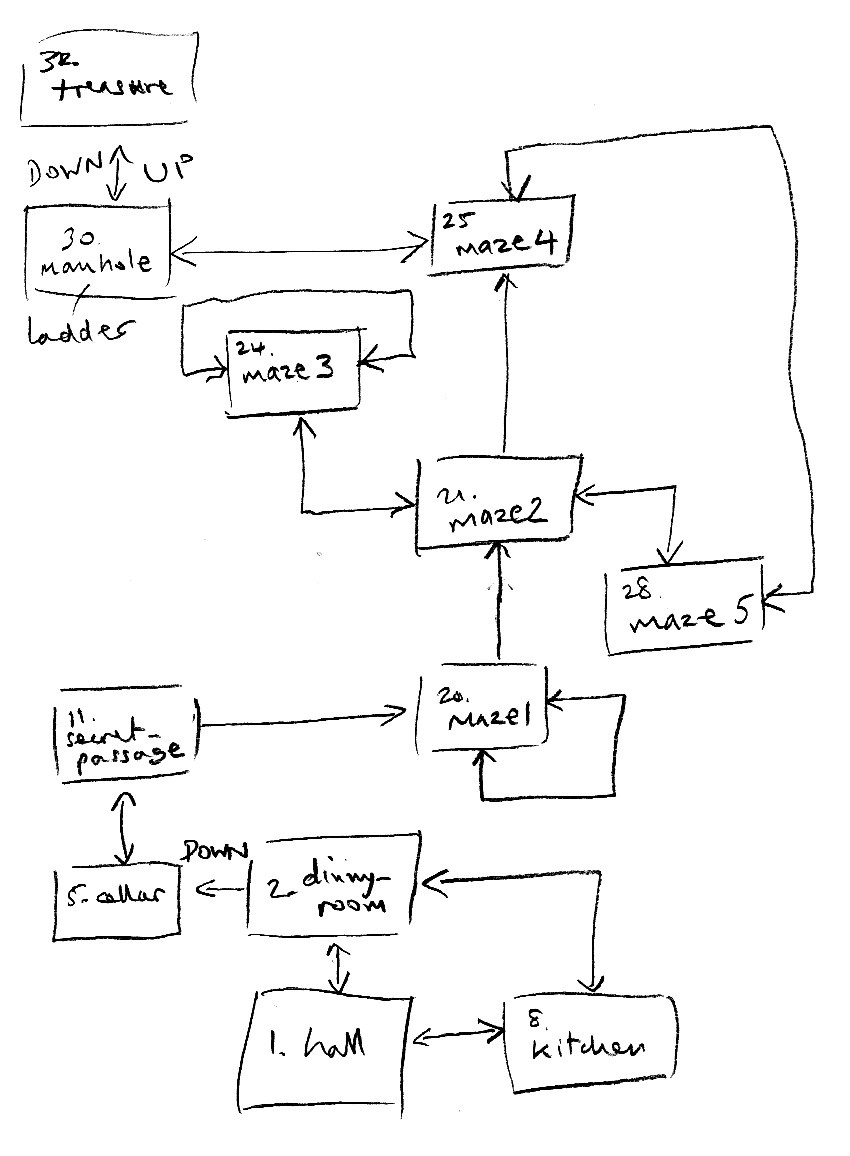 32.
treasure
DOWN UP
30.
manhole
ladder
25
maze 4
24.
maze 3
21.
maze2
28.
maze 5
11.
secret-
passage
20.
maze1
DOWN
5. cellar
2. dinny-
room
1. hall
8.
kitchen